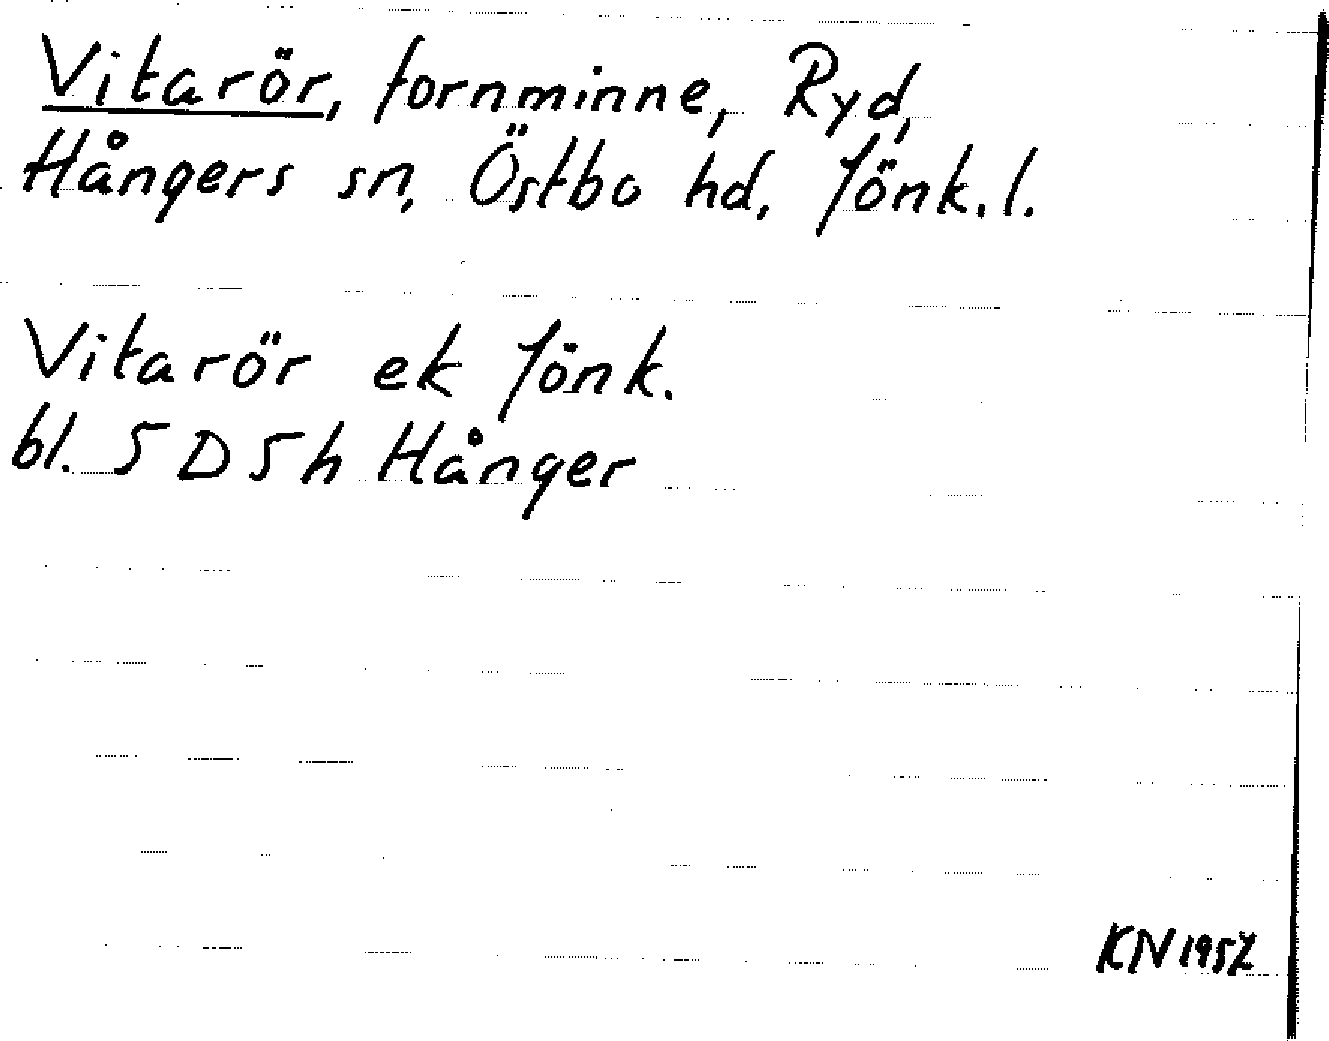 Vitarör, fornminne, Ryd,
Hångers sn, Östbo hd, Jönk. l.
Vitarör ek Jönk.
bl. 5 D 5 h Hånger
KN 1957